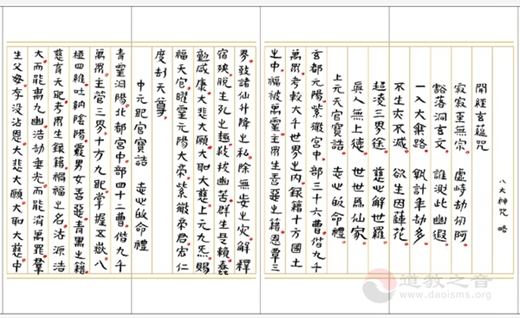 八大神咒 略
開經玄蘊咒
寂寂至無宗 虛峙劫仞阿
豁落洞玄文 誰測此幽遐
一入大乘路 孰計年劫多
不生亦不滅 欲生因蓮花
超凌三界途 慈心解世羅
真人無上德 世世為仙家
上元天官寶誥 志心皈命禮
玄都元陽紫微宮中部三十六曹偕九千
萬眾考較大千世界之內錄籍十方國土
之中福被萬靈主眾生善惡之籍恩覃三
界致諸仙升降之私除無妄之災解釋
宿殃脫生死之趣救拔幽苦群生是賴蠢
動咸康大悲大願大聖大慈上元九炁賜
福天官曜靈元陽大帝紫微帝君宥仁
度劫天尊
中元地官寶誥 志心皈命禮
青靈洞陽北都宮中部四十二曹偕九千
萬眾主管三界十方九地掌握五嶽八
極四維吐納陰陽覈男女善惡青黑之籍
慈育天地考眾生錄籍禍福之名法源浩
大而能離九幽浩劫垂光而能消萬罪群
生父母存沒沾恩大悲大願大聖大慈中
道教之音
www.daoisms.org